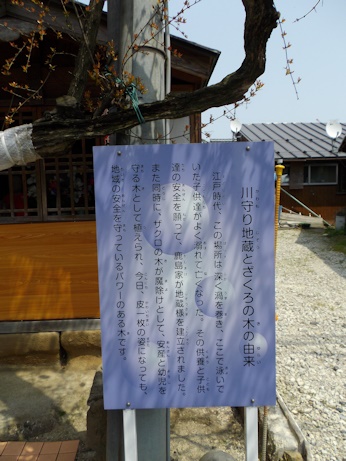 川守り地蔵とざくろの木の由来
江戸時代、この場所は深く渦を巻き、ここで泳いで
いた子供達がよく溺れて亡くなった。その供養と子供
達の安全を願って、鹿島家が地蔵様を建立されました。
また同時に、ザクロの木が魔除けとして、安産と幼児を
守る木として植えられ、今日、皮一枚の姿になっても、
地域の安全を守っているパワーのある木です。